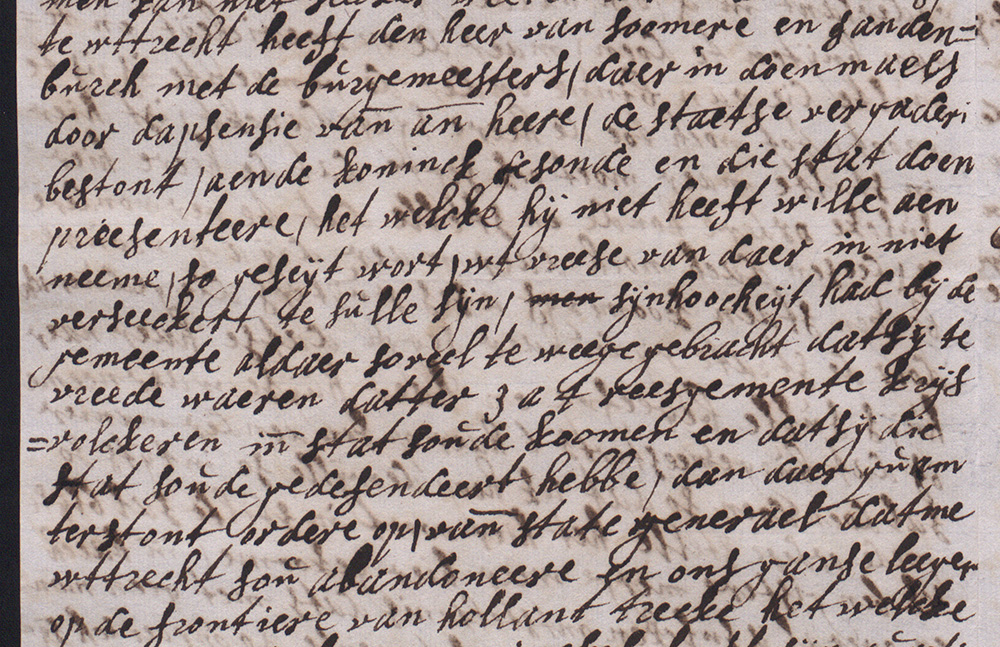 te wttrecht heeft den heer van soomere en sanden=
burch met de burgemeesters, daer in doenmaels
door dapsensie van an heere, de staetse vergaderi
bestont, aende koninck gesonde en die stat doen
preesenteere, het welcke hÿ niet heeft wille aen
neeme, so geseÿt wort, wt vreese van daer in niet
verseeckert te sulle sÿn, sÿnhoocheÿt had bÿ de
gemeente aldaer soveel te weege gebracht dat sÿ te
vreede waeren datter 3 a 4 reesgemente krÿs
=volckeren in stat soude koomen en dat sÿ die
stat soude gedefendeert hebbe, dan daer quam
terstont ordere op, van state generael datme
wttrecht sou abandoneere en ons ganse leeger
op de frontiere van hollant trecke het welcke